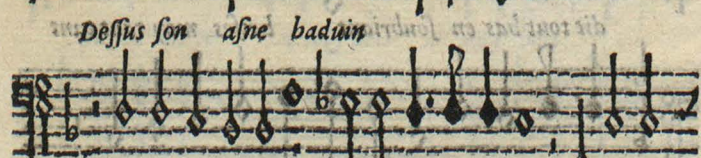 Deſſus ſon aſne baduin